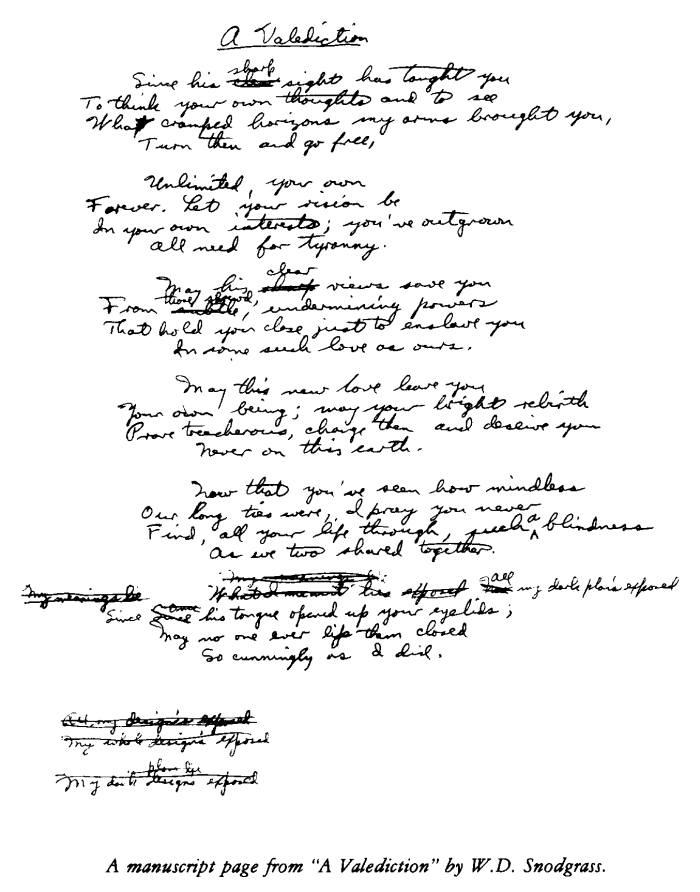 A Valediction
sharp
Since his clear sight has taught you
To think your own thoughts and to see
What cramped horizons my arms brought you,
Turn then and go free,
Unlimited, your own
Forever. Let your vision be
In your own interests; you've outgrown
All need for tyranny.
clear
May his sharp views save you
those shrewd,
From subtle, undermining powers
That hold you close just to enslave you
In some such love as ours.
May this new love leave you
Your own being; may your bright rebirth
Prove treacherous, change then and deceive you
Never on this earth.
Now that you've seen how mindless
Our long ties were, I pray you never
Find, all your life through, such a blindness
As we two shared together.
My meanings lie
My meanings lie What I meant lies exposed all my dark plans exposed
Since his tongue opened up your eyelids;
May no one ever lip them closed
So cunningly as I did.
All my designs exposed
My whole designs exposed
plans lie
My dark designs exposed
A manuscript page from "A Valediction" by W.D. Snodgrass.